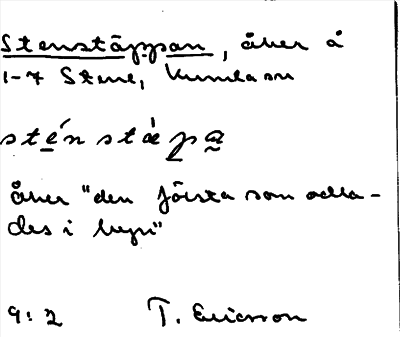 Stenstäppan, åker å
1-7 Stene, Kumla sn
sténstàpa̰
åker "den första som odla-
des i byn"
9:2 T. Ericsson